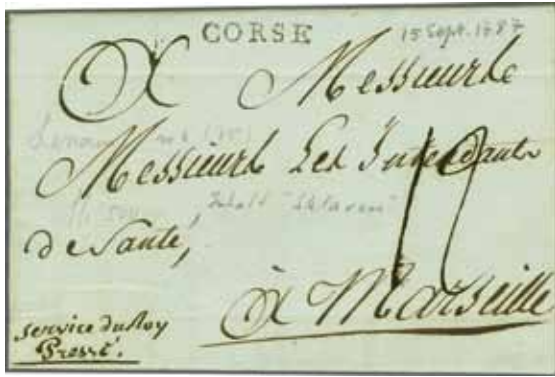 CORSE
15 Sept. 1787
A Messieurs
Messieurs Les Intendants
de Santé,
12
à Marseille
service du Roy
Pressé.